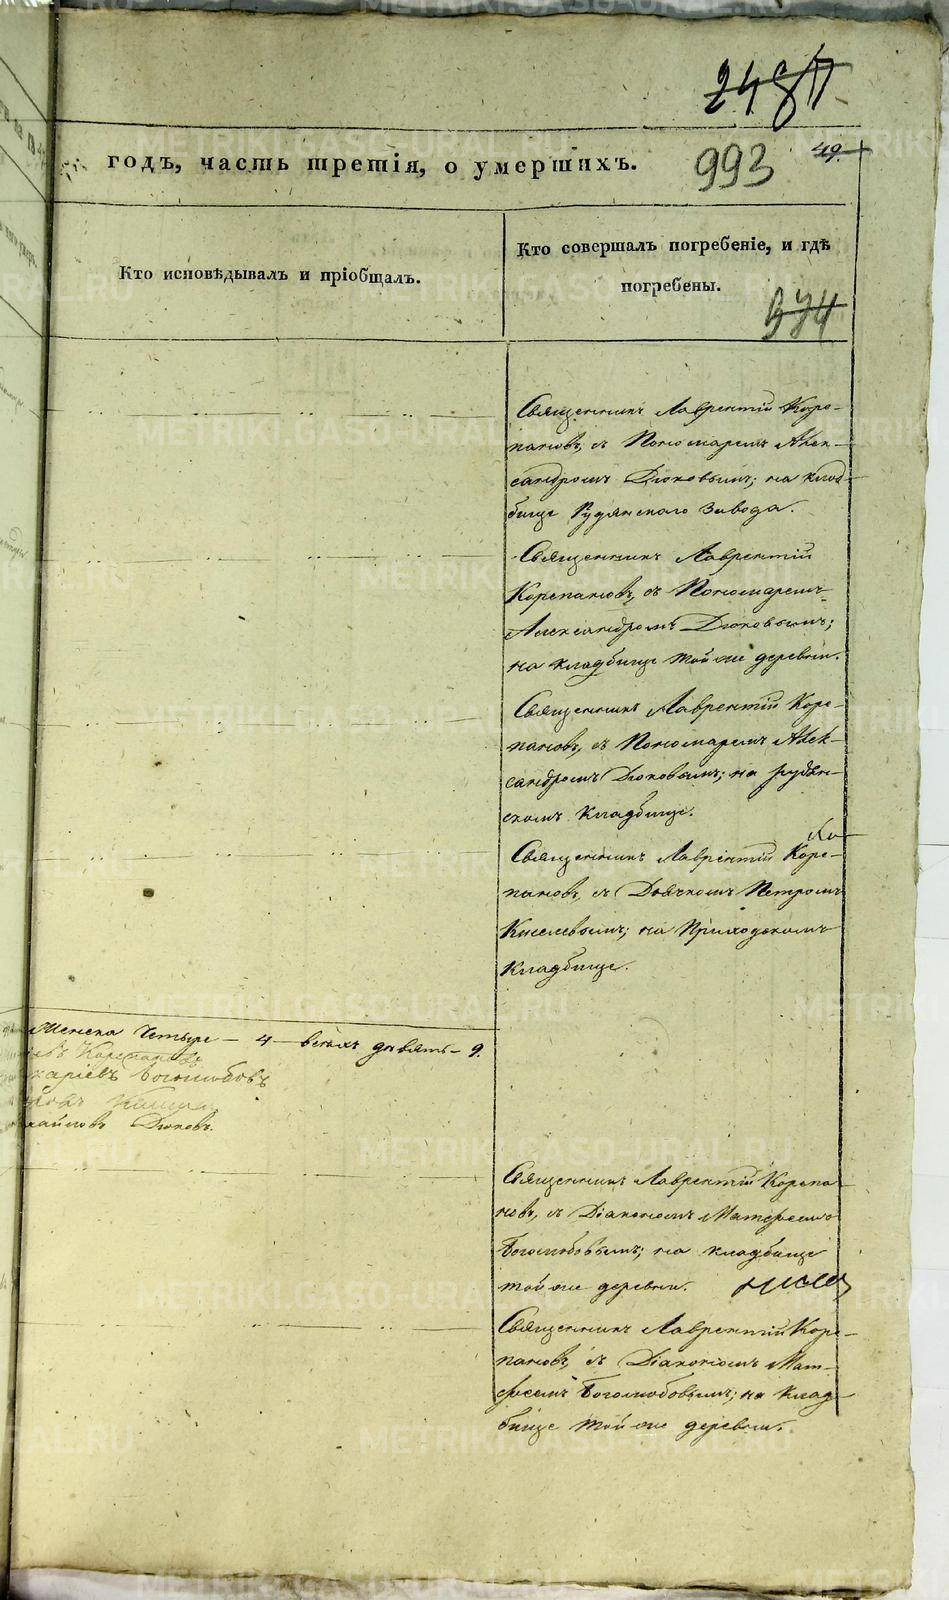 годъ, часть третія, о умершихъ.
993
49.
Кто исповѣдывалъ и пріобщалъ.
Кто совершалъ погребеніе, и гдѣ
погребены.
974
Священникъ Лаврентій Коре-
пановъ, съ Пономаремъ Алек-
сандромъ Дюковымъ; на клад-
бище Рудянскаго завода.
Священникъ Лаврентій
Корепановъ, съ Пономаремъ
Александромъ Дюковымъ;
на кладбище той же деревни.
Священникъ Лаврентій Коре-
пановъ, съ Пономаремъ Алек-
сандромъ Дюковымъ; на рудян-
скомъ кладбище.
Священникъ Лаврентій Коре-
пановъ, съ Дьячкомъ Петромъ
Киселевымъ; на Приходскомъ
кладбище.
Женска Четыре - 4 - всехъ девять - 9.
Корепановъ
Боголюбовъ
Дюковъ.
Священникъ Лаврентій Корепа-
новъ, съ Діакономъ Матфеемъ
Боголюбовымъ; на кладбище
той же деревни.
Священникъ Лаврентій Коре-
пановъ, съ Діакономъ Мат-
феемъ Боголюбовымъ; на клад-
бище той же деревни.
METRIKI.GASO-URAL.RU